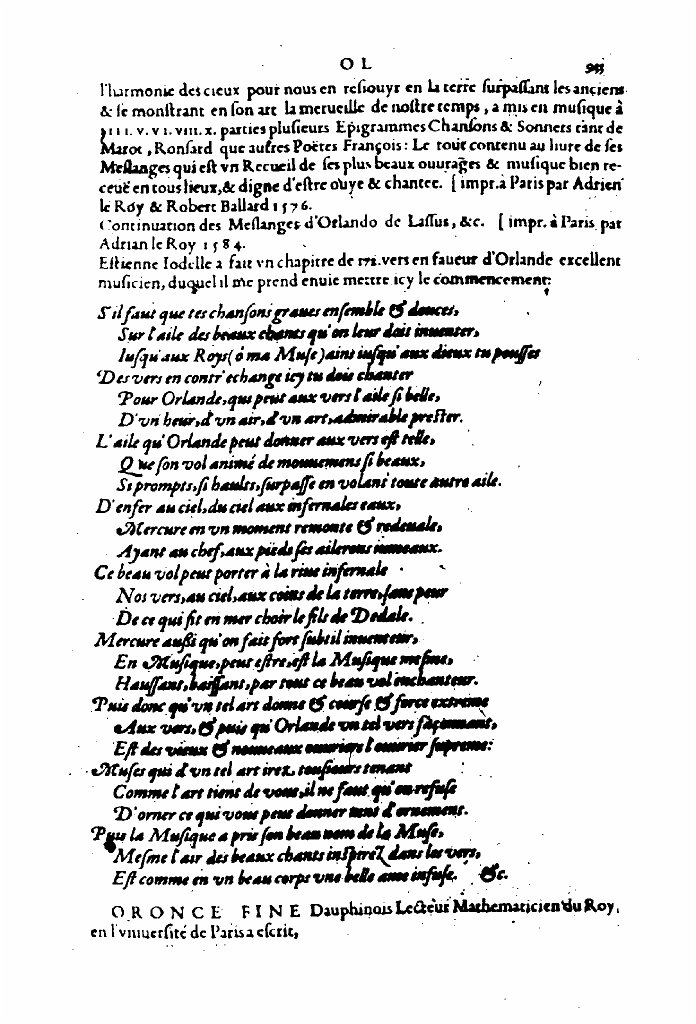 O L 953
l'harmonie des cieux pour nous en resiouyr en la terre surpassant les anciens
& se monstrant en son art la merueille de nostre temps, a mis en musique à
IIII. V. VI. VIII. X. parties plusieurs Epigrammes Chansons & Sonnets tant de
Marot, Ronsard que autres Poëtes François: Le tout contenu au liure de ses
Meslanges qui est vn Recueil de ses plus beaux ouurages & musique bien re-
ceuë en tous lieux, & digne d'estre ouye & chantee. [impr. à Paris par Adrien
le Roy & Robert Ballard 1576.
Continuation des Meslanges d'Orlando de Lassus, &c. [impr. à Paris par
Adrian le Roy 1584.
Estienne Iodelle a fait vn chapitre de 172. vers en faueur d'Orlande excellent
musicien, duquel il me prend enuie mettre icy le commencement:
S'il faut que tes chansons graues ensemble & douces,
Sur l'aile des beaux chants qu'on leur doit inuenter,
Iusqu'aux Roys (ô ma Muse) ains iusqu'aux dieux tu pousses
Des vers en contr'echange icy tu dois chanter
Pour Orlande, qui peut aux vers l'aile si belle,
D'vn heur, d'vn air, d'vn art, admirable prester.
L'aile qu'Orlande peut donner aux vers est telle,
Que son vol animé de mouuemens si beaux,
Si prompts, si haults, surpasse en volant toute autre aile.
D'enfer au ciel, du ciel aux infernales eaux,
Mercure en vn moment remonte & redeuale,
Ayant au chef, aux pieds ses ailerons iumeaux.
Ce beau vol peut porter à la riue infernale
Nos vers, au ciel, aux coins de la terre, sans peur
De ce qui fit en mer choir le fils de Dedale.
Mercure aussi qu'on fait fort subtil inuenteur,
En Musique, peut estre, est la Musique mesme,
Haussant, baissant, par tout ce beau vol enchanteur.
Puis donc qu'vn tel art donne & course & force extreme
Aux vers, & puis qu'Orlande vn tel vers façonnant,
Est des vieux & nouueaux ouuriers l'ouurier supreme:
Muses qui d'vn tel art irez, tousiours tenant
Comme l'art tient de vous, il ne faut qu'on refuse
D'orner ce qui vous peut donner tant d'ornement.
Puis la Musique a pris son beau nom de la Muse,
Mesme l'air des beaux chants inspirez dans les vers,
Est comme en vn beau corps vne belle ame infuse. &c.
ORONCE FINE Dauphinois Lecteur Mathematicien du Roy,
en l'vniuersité de Paris a escrit,